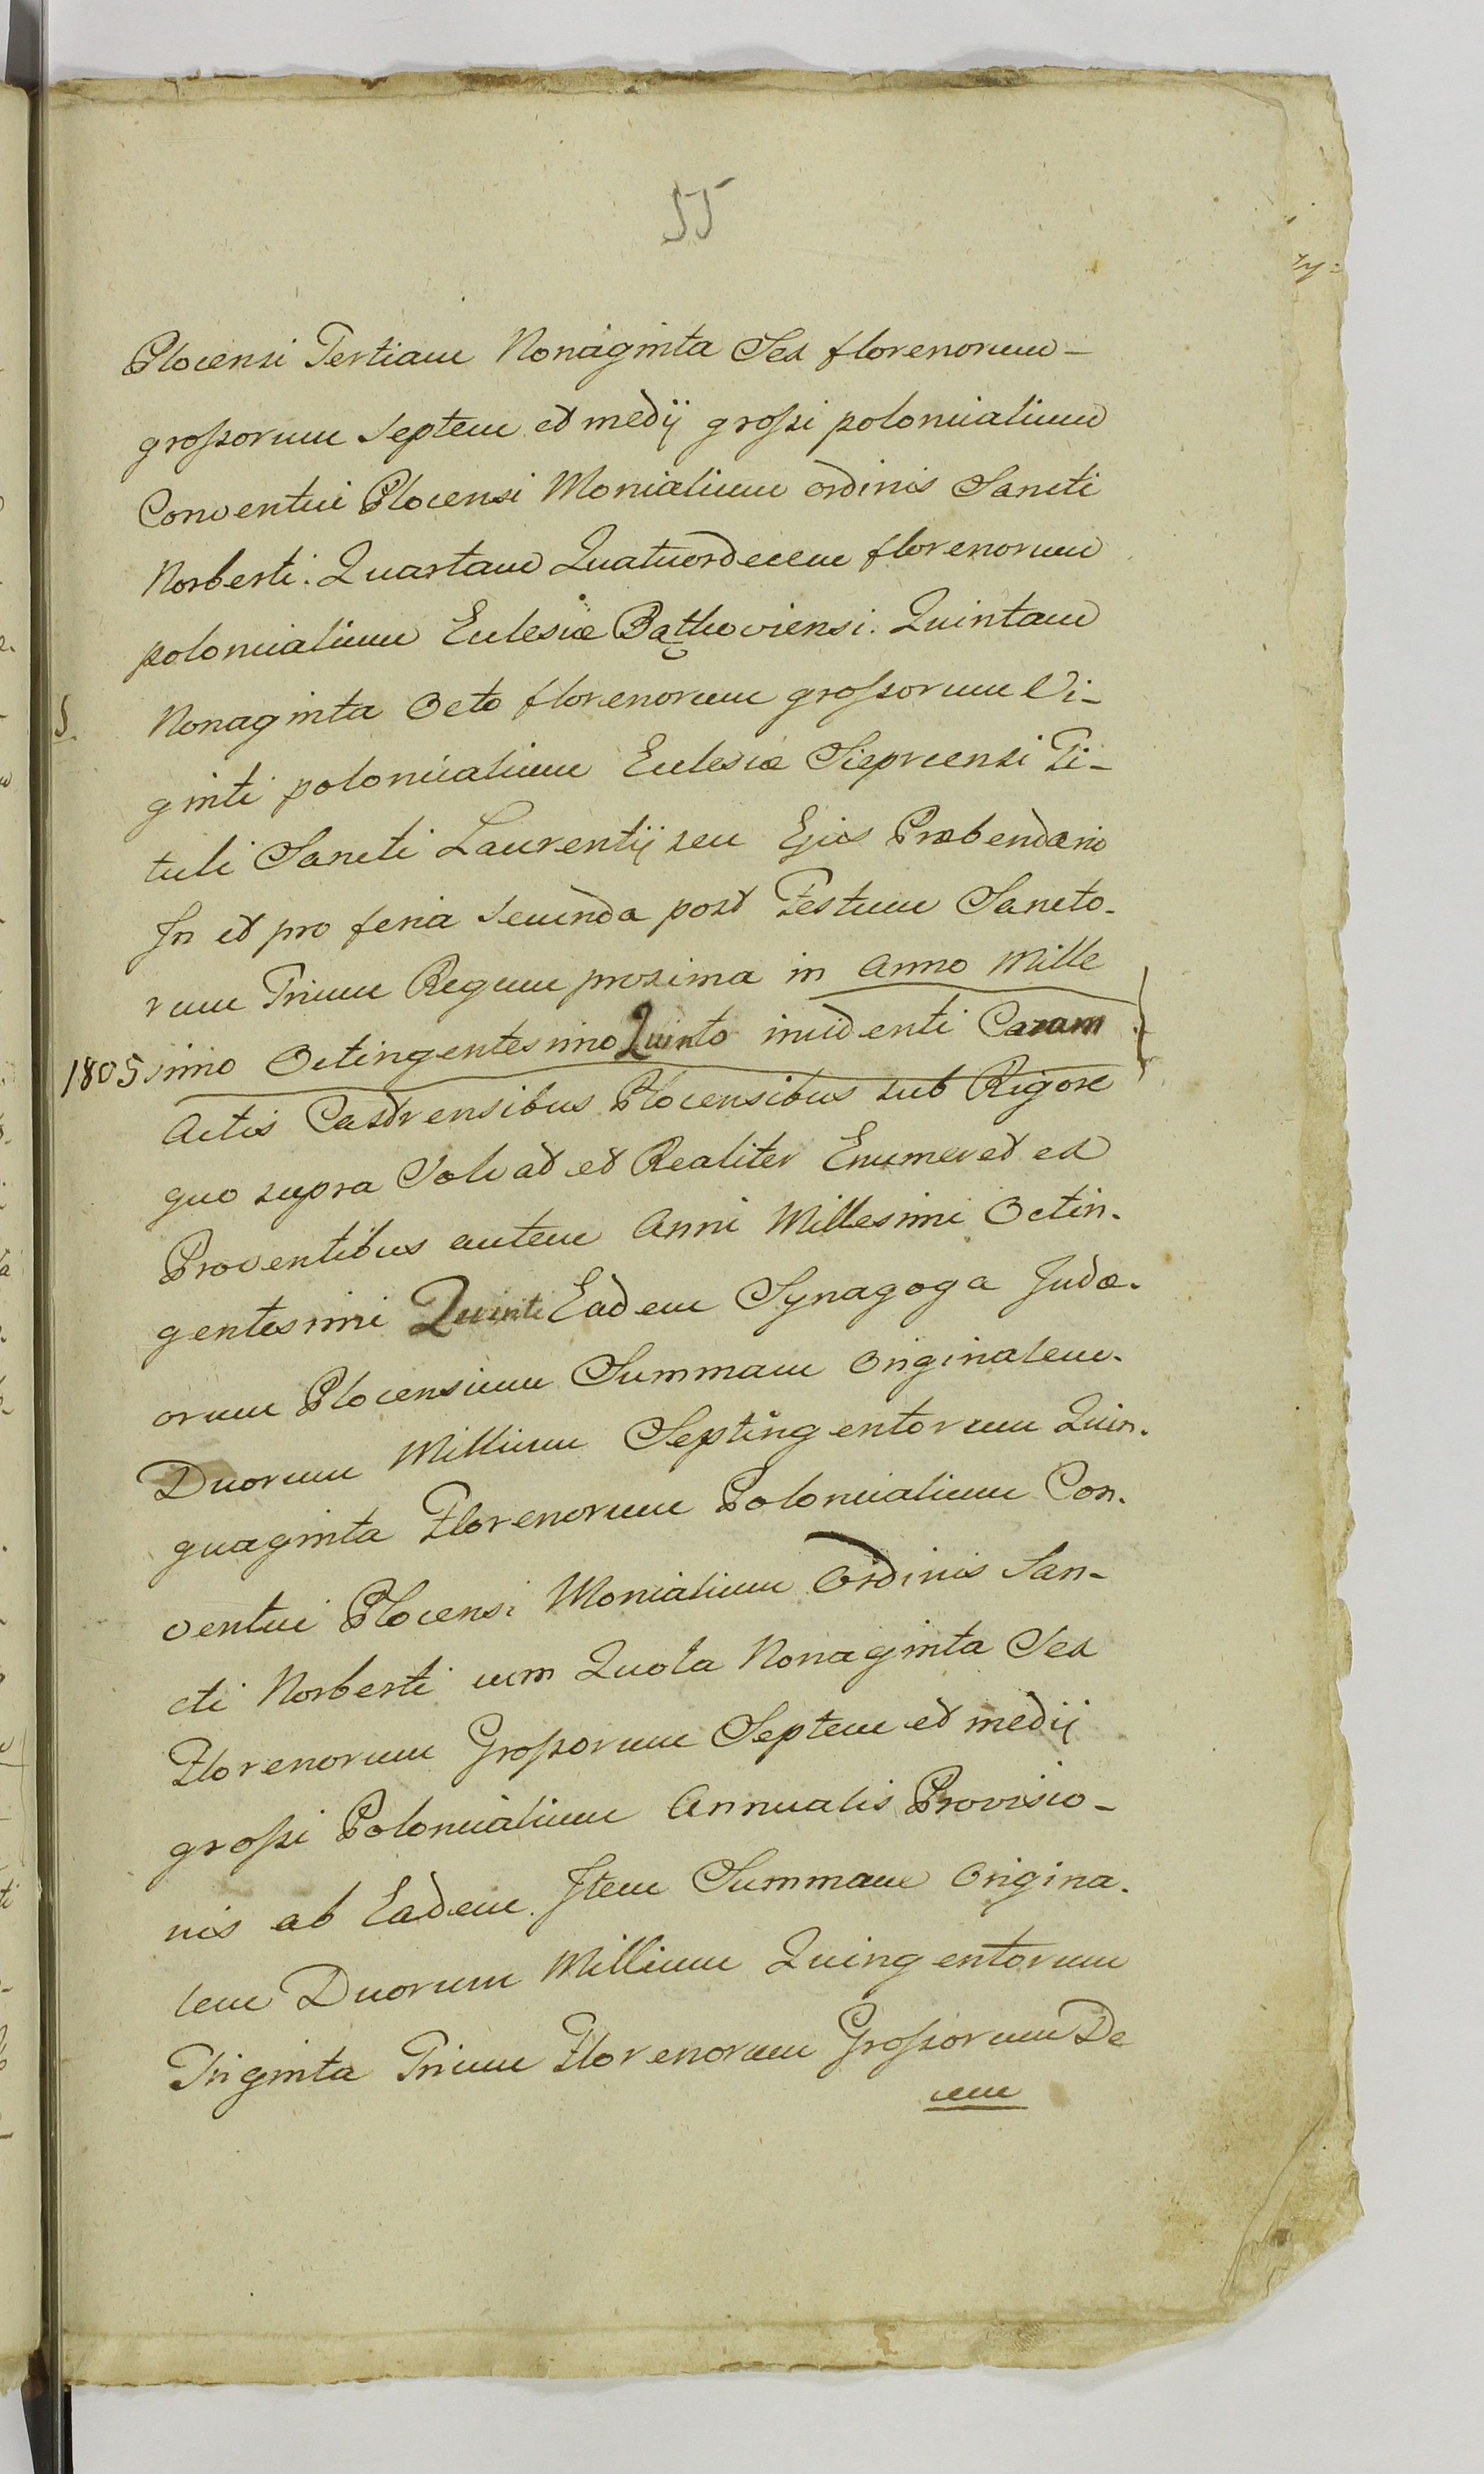 55
Plocensi Tertiam Nonaginta Sex florenorum –
grossorum septem et medij grossi polonicalium
Conventui Plocensi Monialium ordinis Sancti
Norberti. Quartam Quatuordecem florenorum
polonicalium Eclesiæ Bątkoviensi. Quintam
5. Nonaginta Octo florenorum grossorum Vi-
ginti polonicalium Eclesiæ Sieprcensi Ti-
tuli Sancti Laurentij seu Ejus Præbendario
In et pro feria secunda post Festum Sancto-
rum Trium Regum proxima in Anno Mille
1805 simo Octingentesimo Quinto incidenti Coram
Actis Castrensibus Plocensibus sub Rigore
quo supra Solvat et Realiter Enumeret ex
Proventibus autem Anni Millesimi Octin-
gentesimi Quinti Eadem Synagoga Judæ-
orum Plocensium Summam Originalem
Duorum Millium Septingentorum Quin-
quaginta Florenorum Polonicalium Con-
ventui Plocensi Monialium Ordinis San-
cti Norberti cum Quota Nonaginta Sex
Florenorum Grossorum Septem et medij
grossi Polonicalium Annualis Provisio-
nis ab Eadem. Item Summam Origina-
lem Duorum Millium Quingentorum
Triginta Trium Florenorum Grossorum De
cem